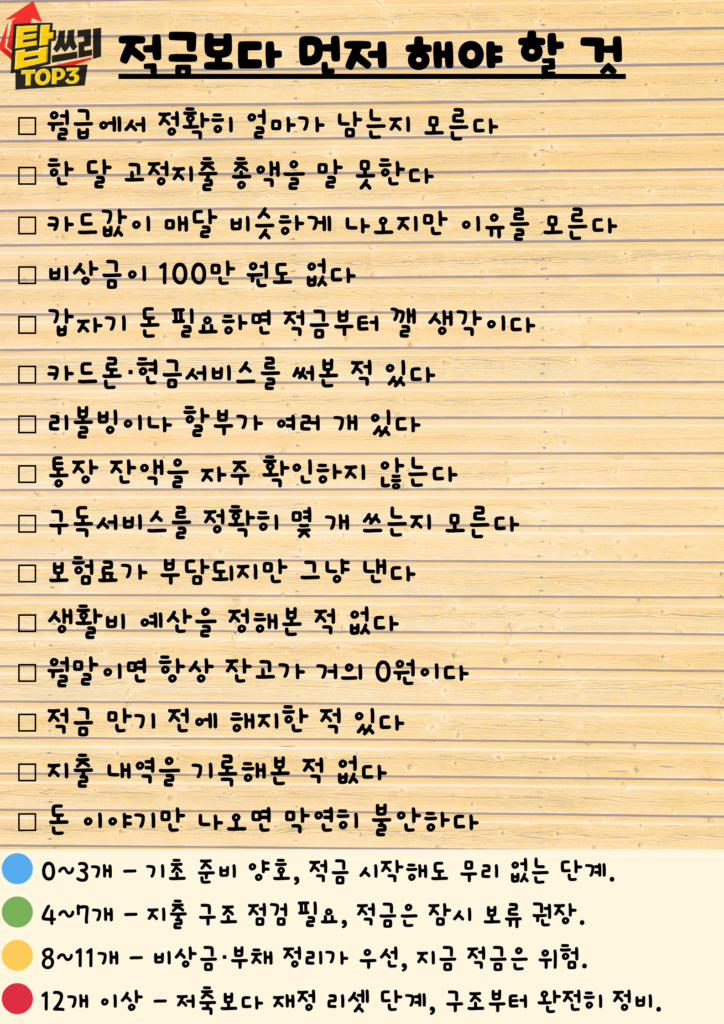 탑쓰리
TOP3
적금보다 먼저 해야 할 것
□ 월급에서 정확히 얼마가 남는지 모른다
□ 한 달 고정지출 총액을 말 못한다
□ 카드값이 매달 비슷하게 나오지만 이유를 모른다
□ 비상금이 100만 원도 없다
□ 갑자기 돈 필요하면 적금부터 깰 생각이다
□ 카드론·현금서비스를 써본 적 있다
□ 리볼빙이나 할부가 여러 개 있다
□ 통장 잔액을 자주 확인하지 않는다
□ 구독서비스를 정확히 몇 개 쓰는지 모른다
□ 보험료가 부담되지만 그냥 낸다
□ 생활비 예산을 정해본 적 없다
□ 월말이면 항상 잔고가 거의 0원이다
□ 적금 만기 전에 해지한 적 있다
□ 지출 내역을 기록해본 적 없다
□ 돈 이야기만 나오면 막연히 불안하다
0~3개 – 기초 준비 양호, 적금 시작해도 무리 없는 단계.
4~7개 – 지출 구조 점검 필요, 적금은 잠시 보류 권장.
8~11개 – 비상금·부채 정리가 우선, 지금 적금은 위험.
12개 이상 – 저축보다 재정 리셋 단계, 구조부터 완전히 정비.